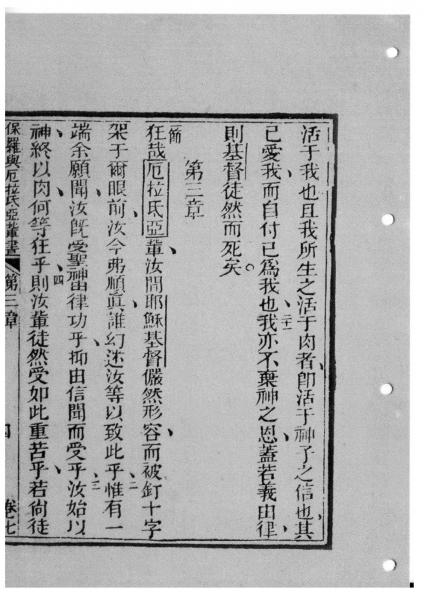 活于我也且我所生之活于肉者卽活于神子之信也其
己愛我而自付己爲我也二十一我亦不棄神之恩蓋若義由律
則基督徒然而死矣。
第三章
一節狂哉厄拉氐亞輩汝間耶穌基督儼然形容而被釘十字
架于爾眼前汝今弗順眞誰幻迷汝等以致此乎二惟有一
端余願聞汝旣受聖神由律功乎抑由信聞而受乎三汝始以
神終以肉何等狂乎四則汝輩徒然受如此重苦乎若尙徒
保羅與厄拉氐亞輩書 第三章 四 卷七